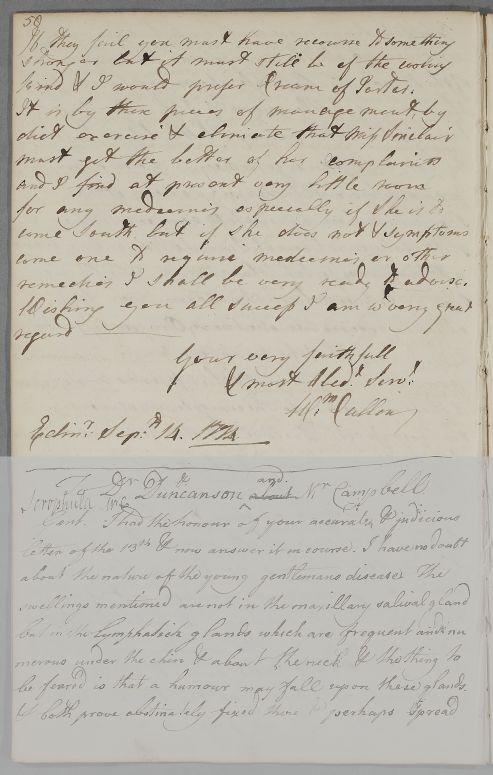 50
If they fail you must have recourse to something
stronger but it must still be of the cooling
kind & I would prefer Cream of Tartar.
It is by these pieces of management, by
diet exercise & climate that Miss Sinclair
must get the better of her complaints
and I find at present very little room
for any medecines especially if She is to
come South but if she does not & symptoms
come one to require medecines or other
remedies I shall be very ready to advise.
Wishing you all success I am wt very great
regard
Your very faithfull
& most Obedt. Servt.
Willm Cullen
Edinr. Sepr. 14. 1774
To Dr Duncanson about and Mr Campbell.
Scrophula
Gent. I had the honour of your accurate & judicious
letter of the 13th & now answer it in course. I have no doubt
about the nature of the young gentlemans disease. The
swellings mentioned are not in the maxillary salival gland
but in the Lymphatick glands which are frequent and nu
merous under the chin & about the neck & the thing to
be feared is that a humour may fall upon these glands
& both prove obstinately fixed there & perhaps Spread